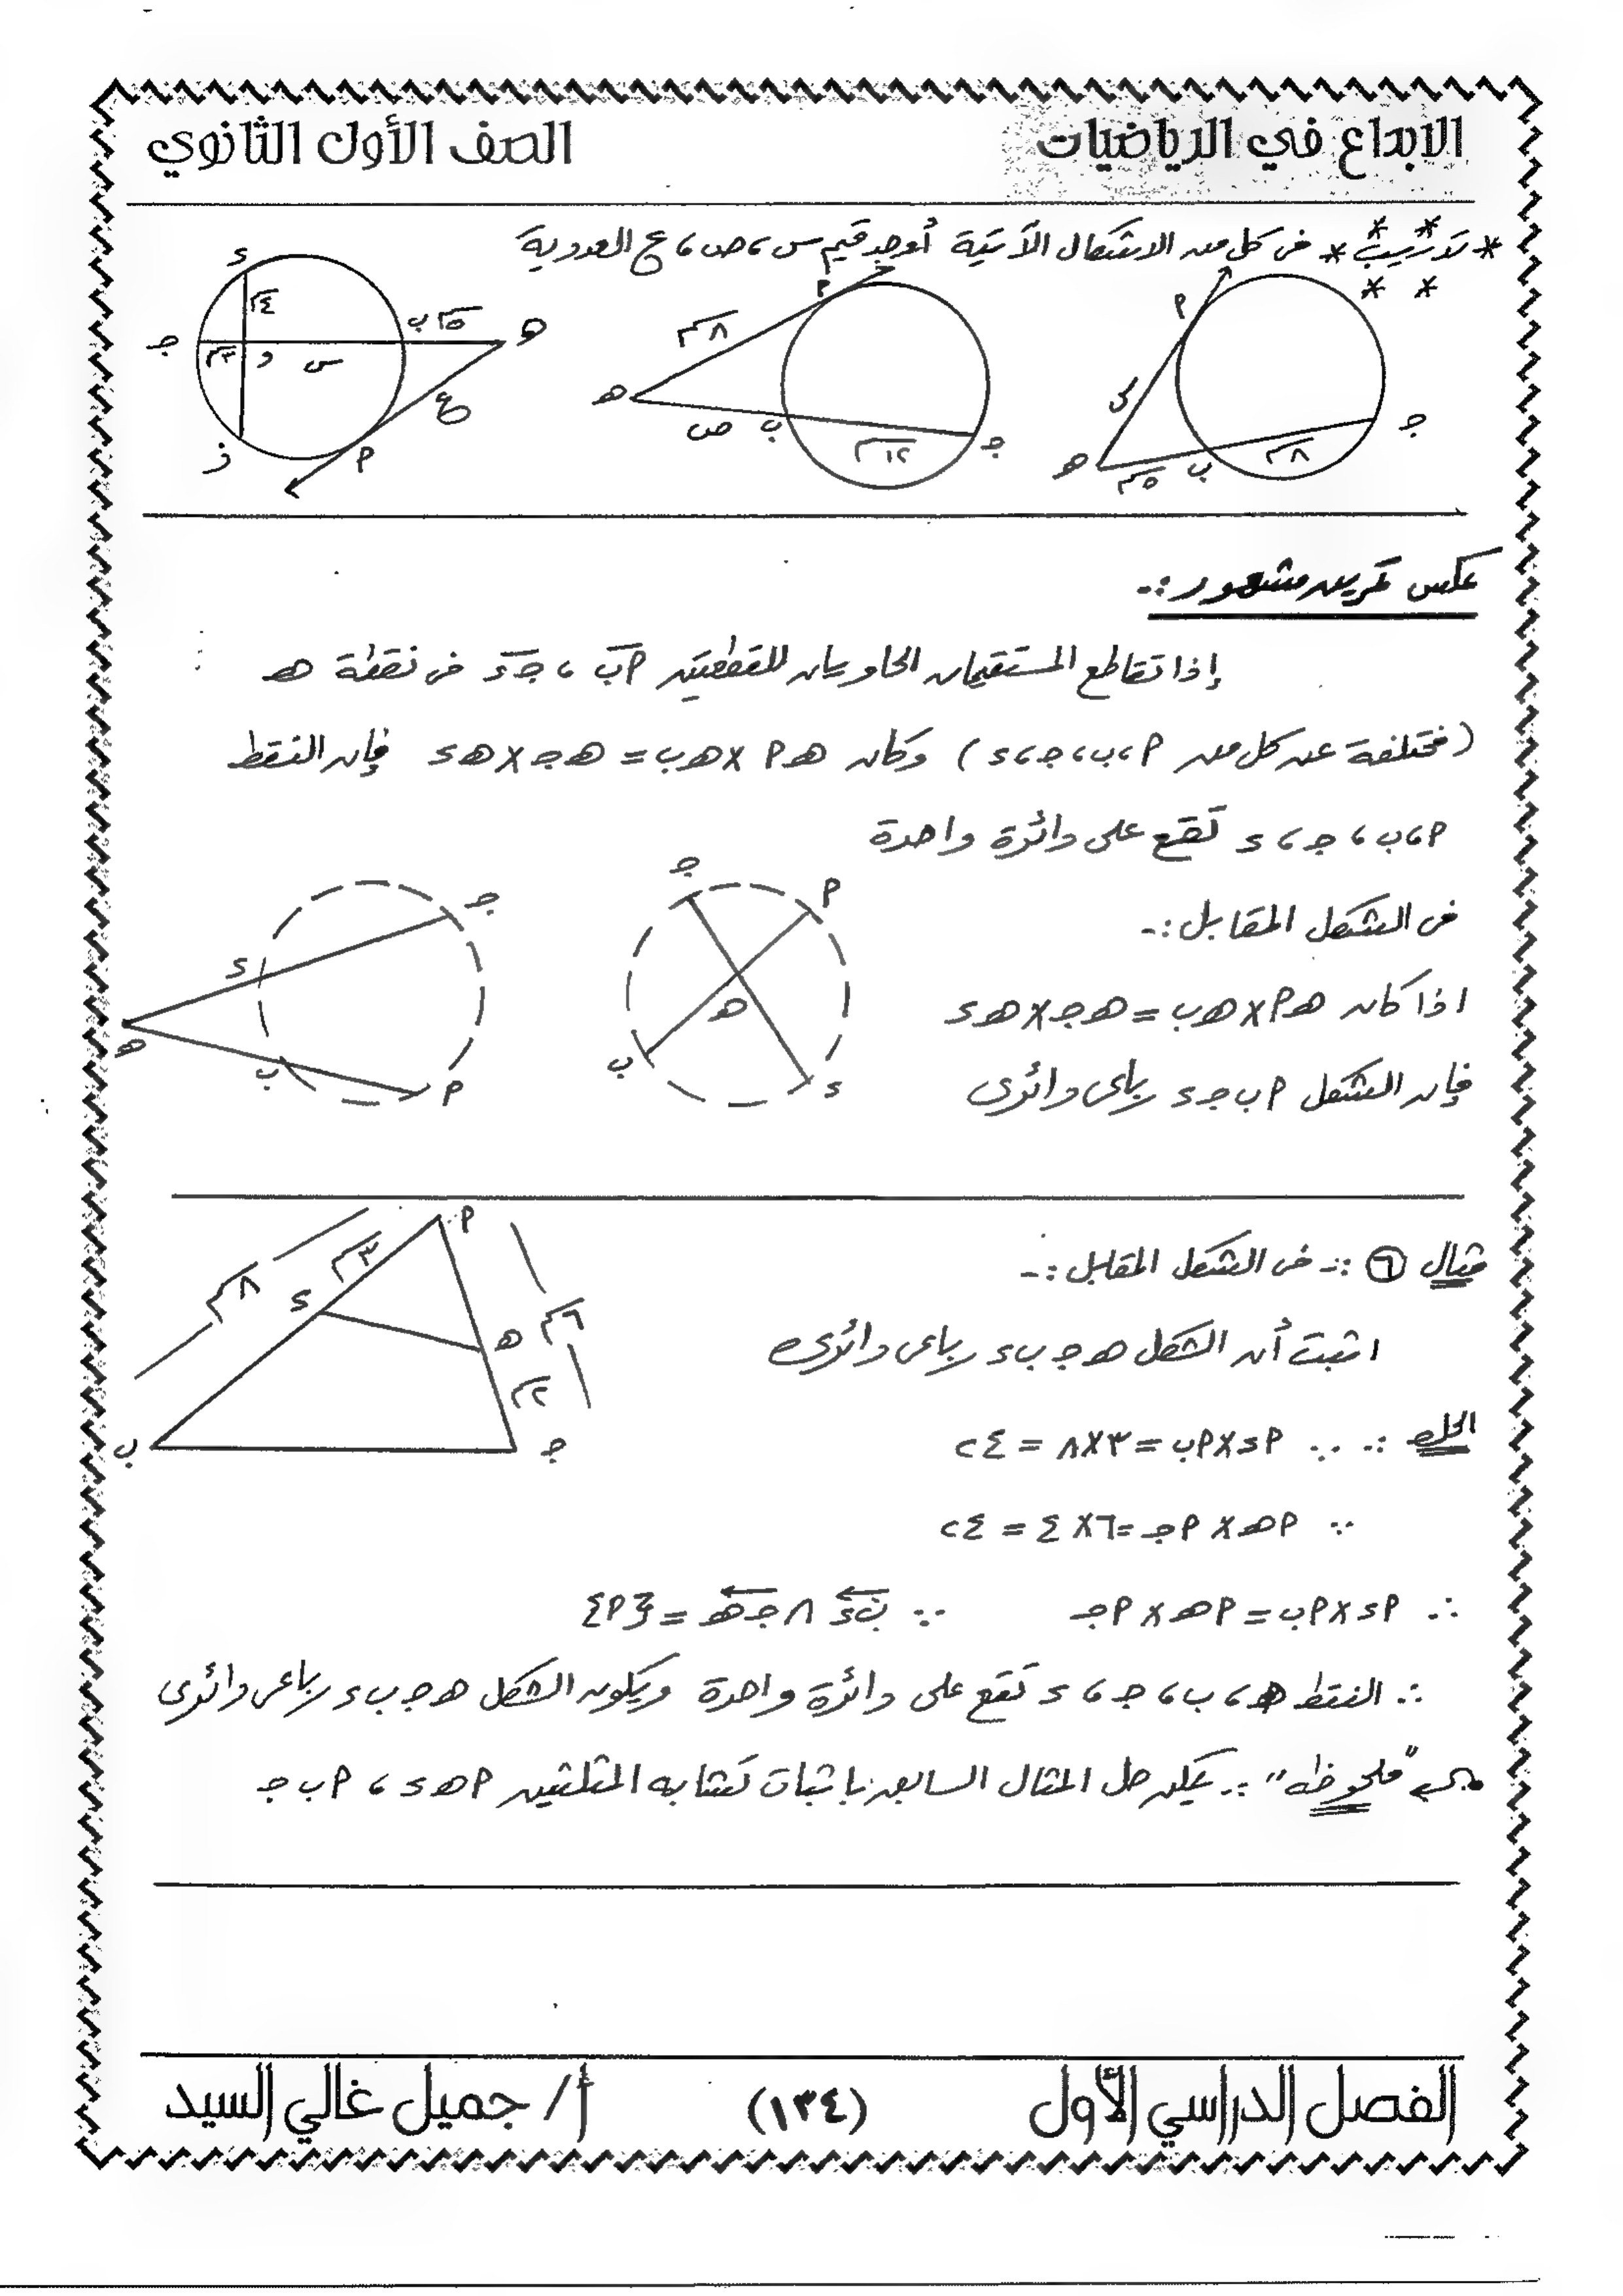 الابداع في الرياضيات
الصف الأول الثانوي
* تدريب * فى كل من الاشكال الآتية أوجد قيم س ، ص ، ع العددية
ع
٥سم
٤سم
٣سم
س
ء
جـ
و
ب
هـ
ز
٢
٨سم
هـ
ص
ب
١٢سم
جـ
٢
س
هـ
٥سم
ب
٨سم
جـ
عكس تمرين مشهور :-
إذا تقاطع المستقيمان الحاويان للقطعتين ٢ب ، جـء فى نقطة هـ
(مختلفة عن كل من ٢،ب،جـ،ء) وكان هـ٢ × هـب = هـجـ × هـء فإن النقط
٢،ب ، جـ ، ء تقع على دائرة واحدة
فى الشكل المقابل :-
اذا كان هـ٢ × هـب = هـجـ × هـء
فإن الشكل ٢ب جـ ء رباعى دائرى
جـ
٢
هـ
ب
ء
جـ
ء
هـ
ب
٢
مثال ٦ :- فى الشكل المقابل :-
اثبت أن الشكل هـ جـ ب ء رباعى دائرى
٢
٣سم
٨سم
ء
هـ
٦سم
٢سم
ب
جـ
الحل :- ∵ ٢ء × ٢ب = ٣ × ٨ = ٢٤
∵ ٢هـ × ٢جـ = ٦ × ٤ = ٢٤
∴ ٢ء × ٢ب = ٢هـ × ٢جـ ∵ بء ∩ جـهـ = {٢}
∴ النقط هـ ، ب ، جـ ، ء تقع على دائرة واحدة ويكون الشكل هـ جـ ب ء رباعى دائرى
"ملحوظه" :- يمكن حل المثال السابق باثبات تشابه المثلثين ٢هـ ء ، ٢ب جـ
الفصل الدراسي الأول
(١٣٤)
أ/ جميل غالي السيد